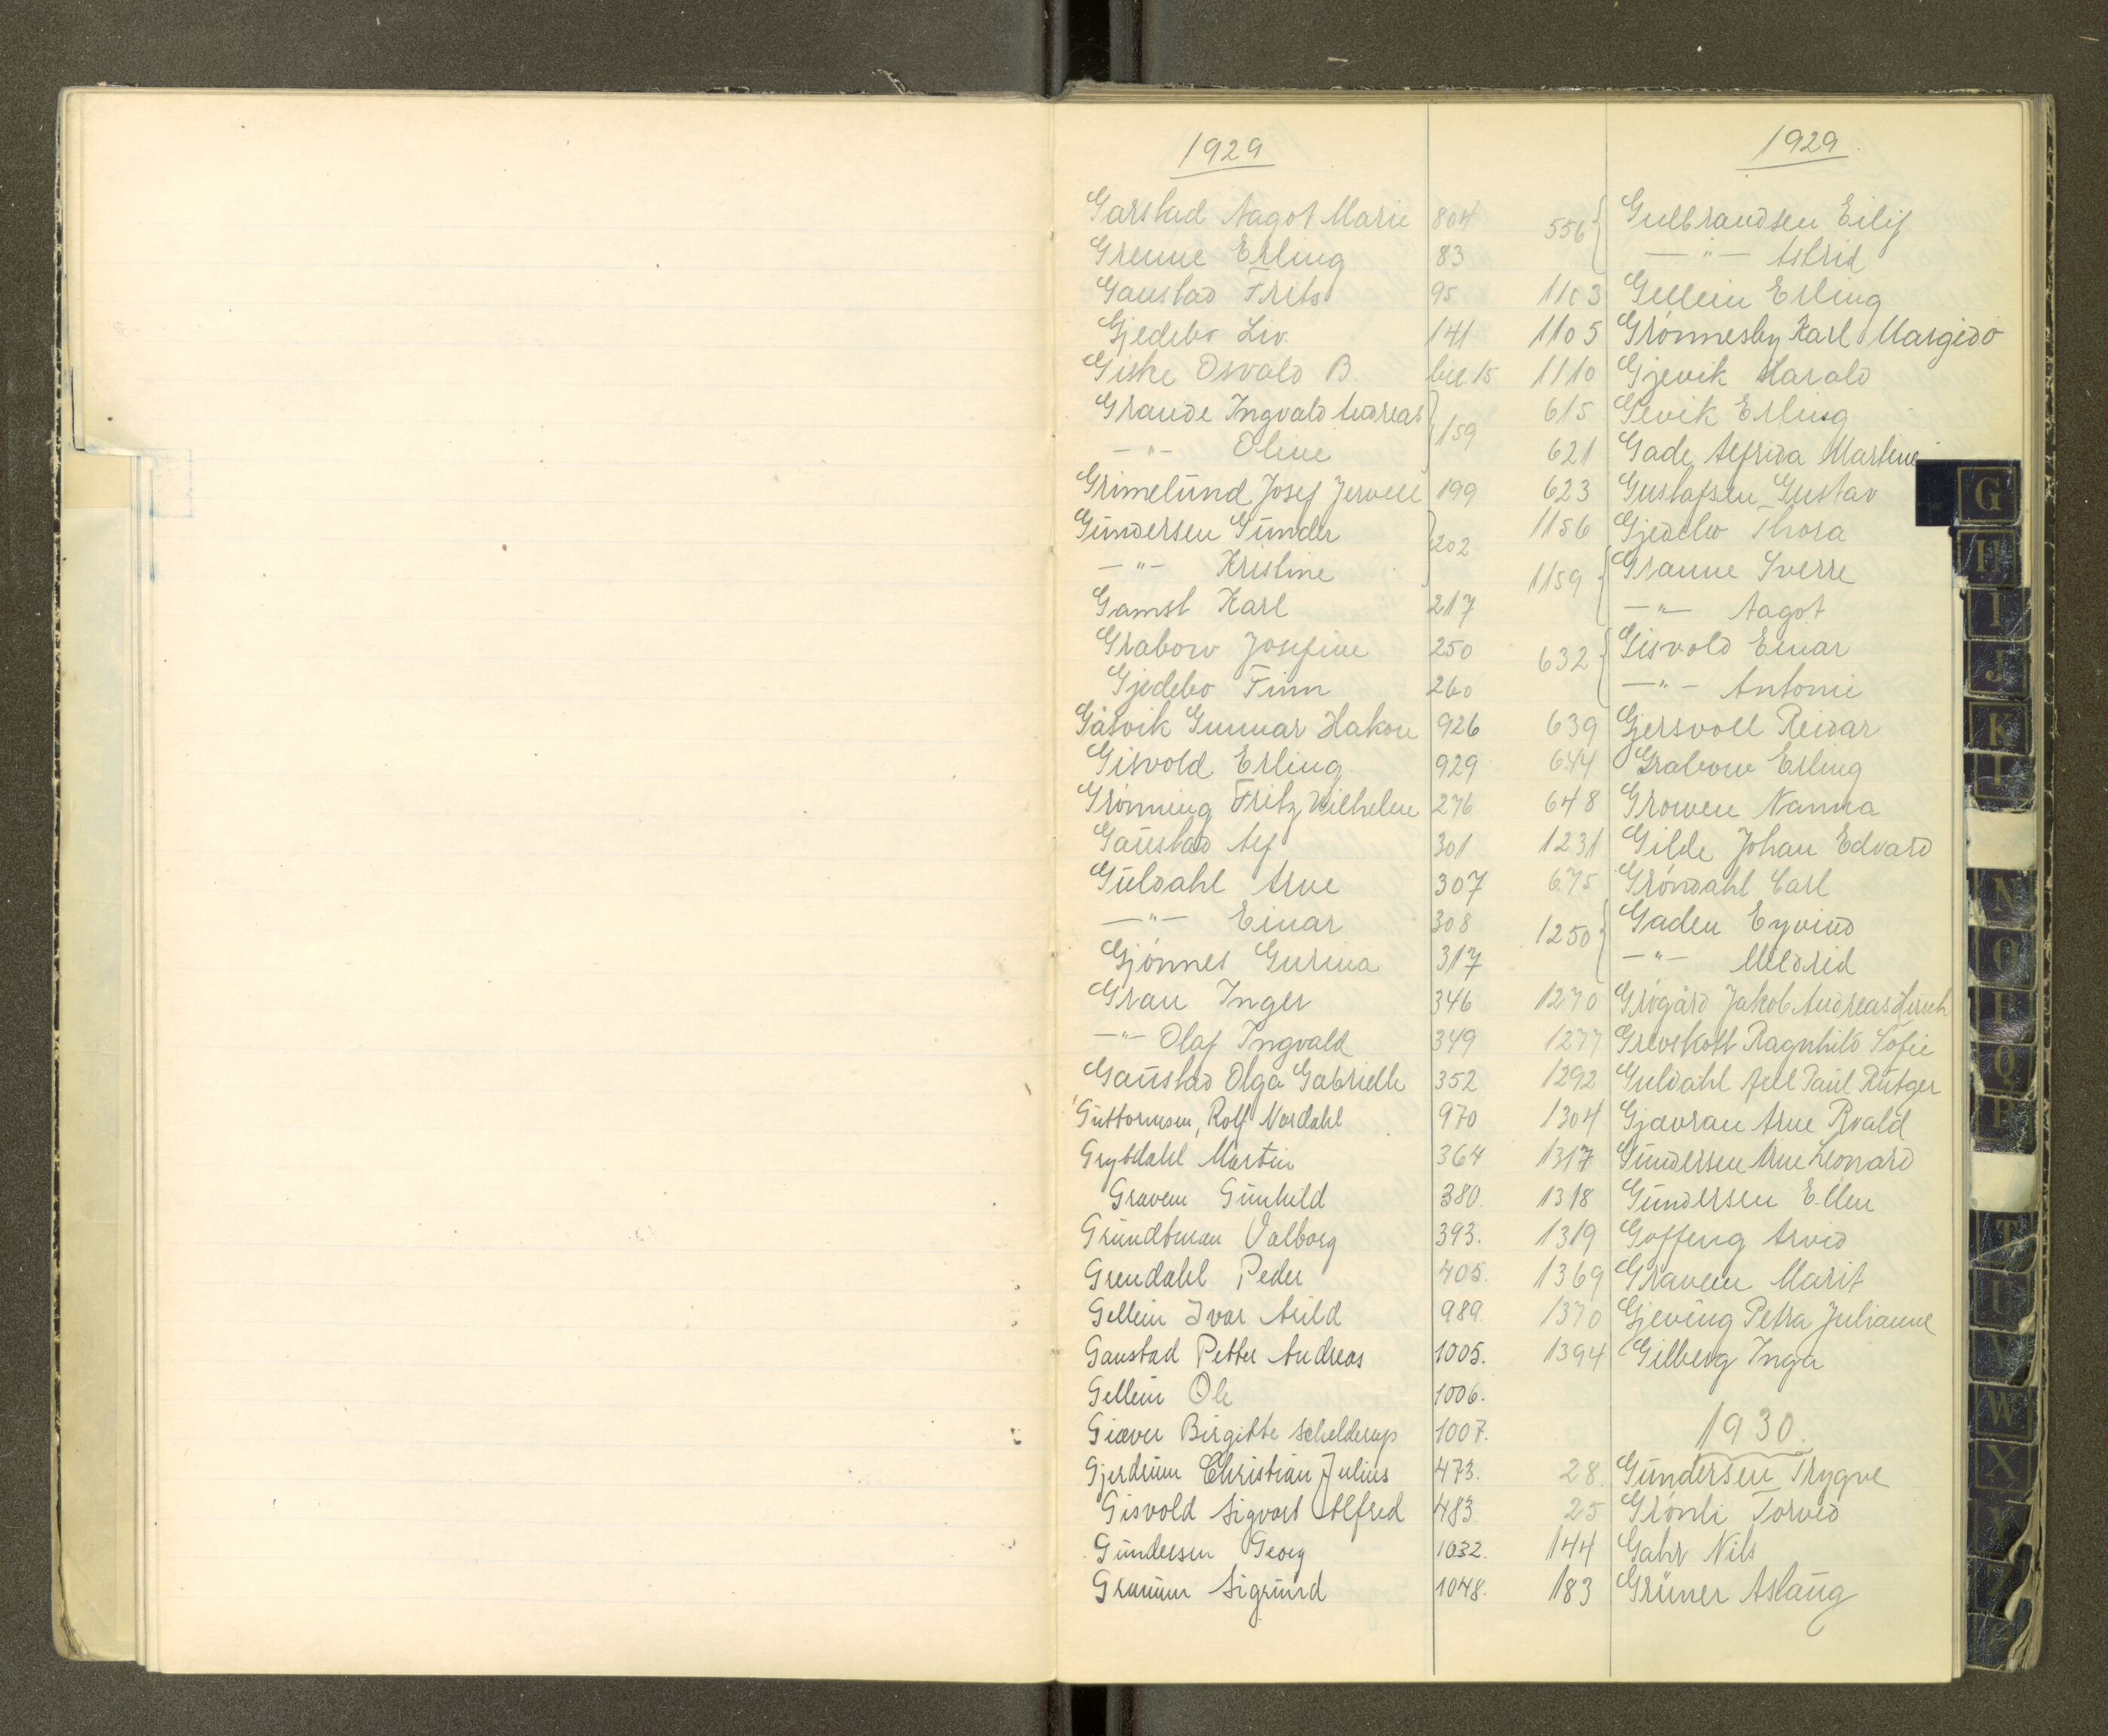 1929
Garstad Aagot Marie 804
Grenne Erling 83
Gaustad Frits 95
Gjedebo Liv. 141
Giske Osvald B. bil. 15
Grande Ingvald Andreas } 159
—"— Oline
Grimelund Josef Jervell 199
Gundersen Gunder } 202
—"— Kristine
Gamst Karl 217
Grabow Josefine 250
Gjedebo Finn 260
Gåsvik Gunnar Hakon 926
Gisvold Erling 929
Grønning Fritz Wilhelm 276
Gaustad Alf 301
Guldahl Arne 307
—"— Einar 308
Gjønnes Gurina 317
Grau Inger 346
—"— Olaf Ingvald 349
Gaustad Olga Gabrielle 352
Guttormsen, Rolf Nordahl 970
Grytdahl Martin 364
Gravem Gunhild 380.
Grundtman Valborg 393.
Grendahl Peder 405.
Gellein Ivar Arild 989.
Gaustad Petter Andreas 1005.
Gellein Ole 1006.
Giæver Birgitte Schelderup 1007.
Gjerdrum Christian Julius 473.
Gisvold Sigvart Alfred 483.
Gundersen Georg 1032.
Gramm Sigrund 1048.
1929.
556 { Gulbrandsen Eilif
—"— Astrid
1103 Gellein Erling
1105 Grønnesby Karl Margido
1110 Gjevik Harald
615 Gevik Erling
621 Gade Alfrida Martine
623 Gustafsen Gustav
1156 Gjedebo Thora
1159 { Granne Sverre
—"— Aagot
632 { Gisvold Einar
—"— Antonie
639 Gjersvoll Reidar
644 Grabow Erling
648 Growen Nanna
1231 Gilde Johan Edvard
675 Grøndahl Carl
1250 { Gaden Eyvind
—"— Mildrid
1270 Grøgård Jakob Andreas Hirsch
1277 Grevskott Ragnhild Sofie
1292 Guldahl Axel Paul Rutger
1304 Gjavran Arne Roald
1317 Gundersen Arne Leonard
1318 Gundersen Ellen
1319 Goffeng Arvid
1369 Gravem Marit
1370 Gjeving Petra Julianne
1394 Gilberg Inga
1930.
28. Gundersen Trygve
25 Grønli Torvid
144 Gahr Nils
183 Grüner Aslaug
G
H
I
J
K
L
N
O
P
Q
R
T
U
V
W
X
Y
Z